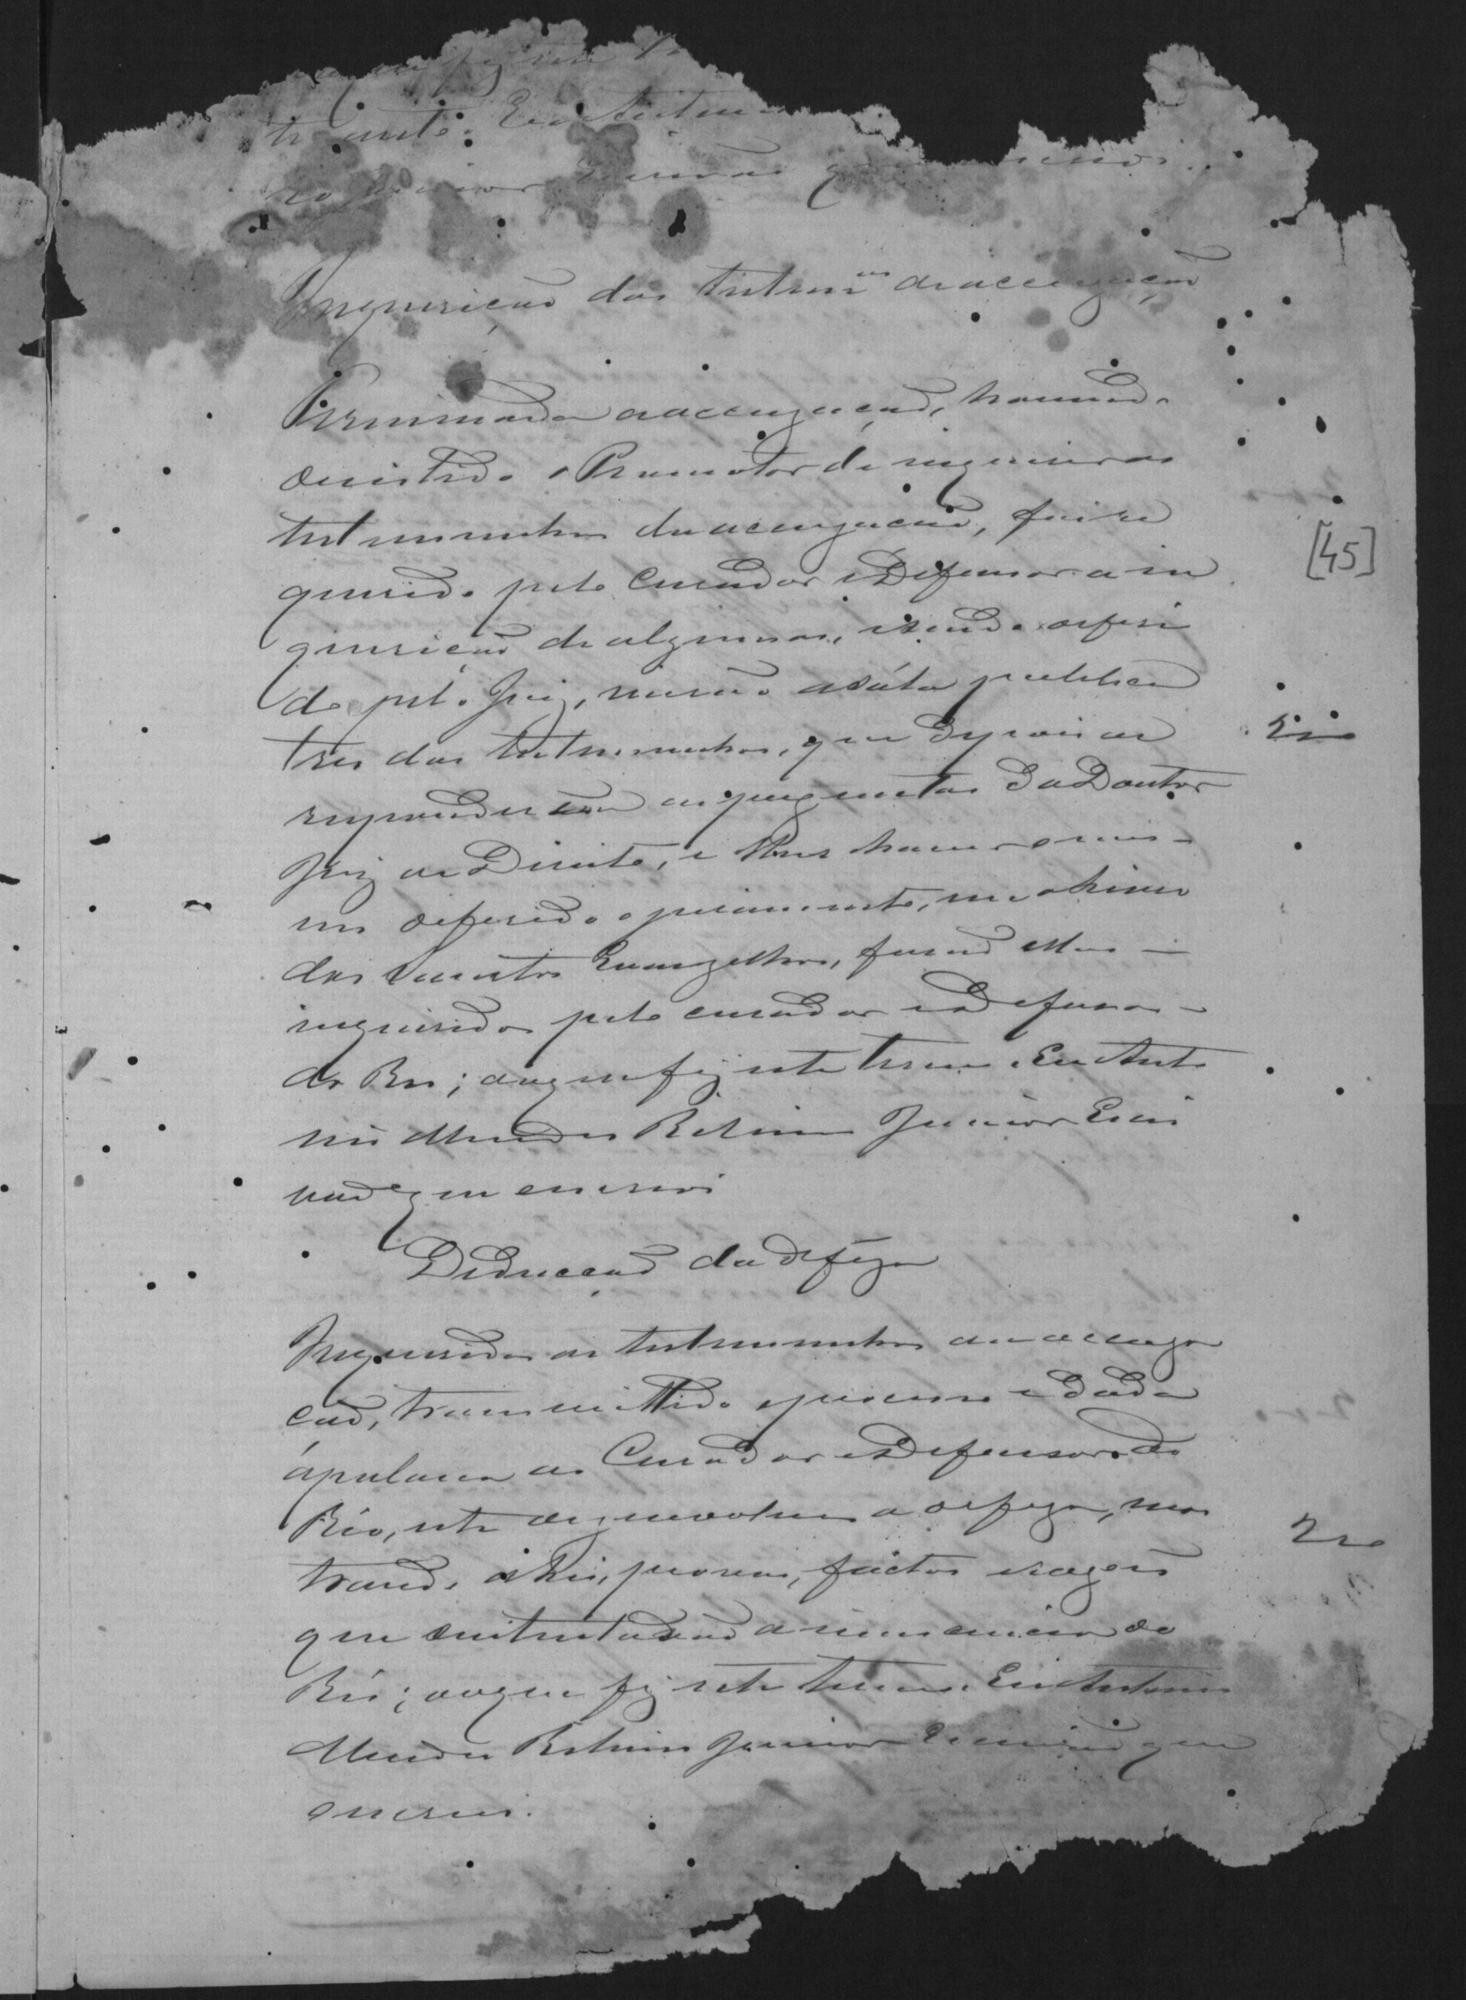 te. Eu Antonio
Junior Escrivão que
Inquirição das testem.as da accuzação
Terminada a accuzação, havendo
desistido o Promotor de inquerir as
testemunhas da accuzação, foi re
querido pelo Curador e Defensor a in
quirição de algumas, e sendo deferi
do pelo Juiz, vierão a sala publica
tres das testemunhas, que depois de
responderem as perguntas do Doutor
Juiz de Direito, e lhes haver o mes-
mo deferido o juramento, no livro
dos Santos Evangelhos, forão ellas
inquiridas pelo curador e Defensor
do Reo; do que fiz este termo. Eu Anto
nio Mendes Ribeiro Junior Escri
vão que escrevi
Deducção da defeza
Inqueridas as testemunhas da accuza
ção, transmittido o processo e dada
a palavra ao Curador e Defensor do
Réo, este desenvolveu a defeza, mos
trando a lei, provas, factos e razões
que sustentavão a innocencia do
Réo; do que fiz este termo. Eu Antonio
Mendes Ribeiro Junior Escrivão que
escrevi.
[45]